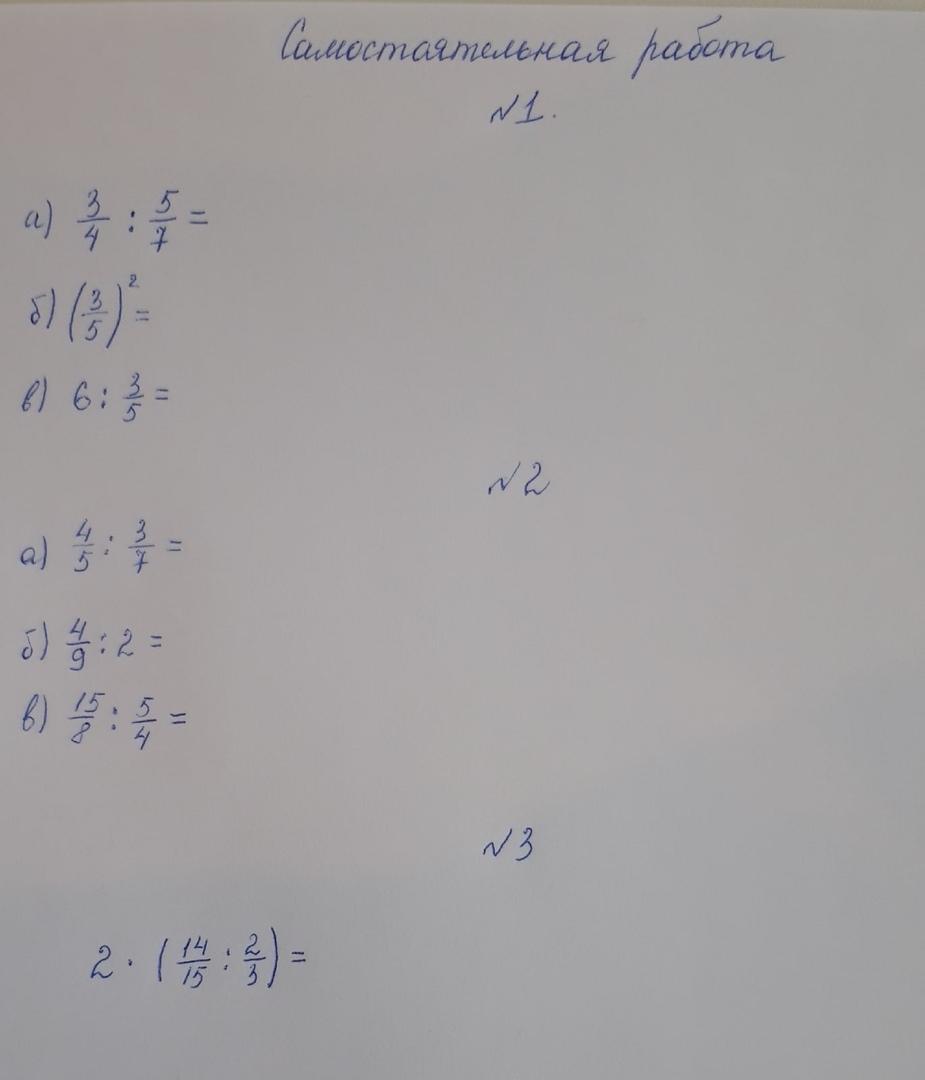 Самостоятельная работа
№1.
а) 3/4 : 5/7 =
б) (3/5)² =
в) 6 : 3/5 =
№2
а) 4/5 : 3/7 =
б) 4/9 : 2 =
в) 15/8 : 5/4 =
№3
2 · (14/15 : 2/3) =